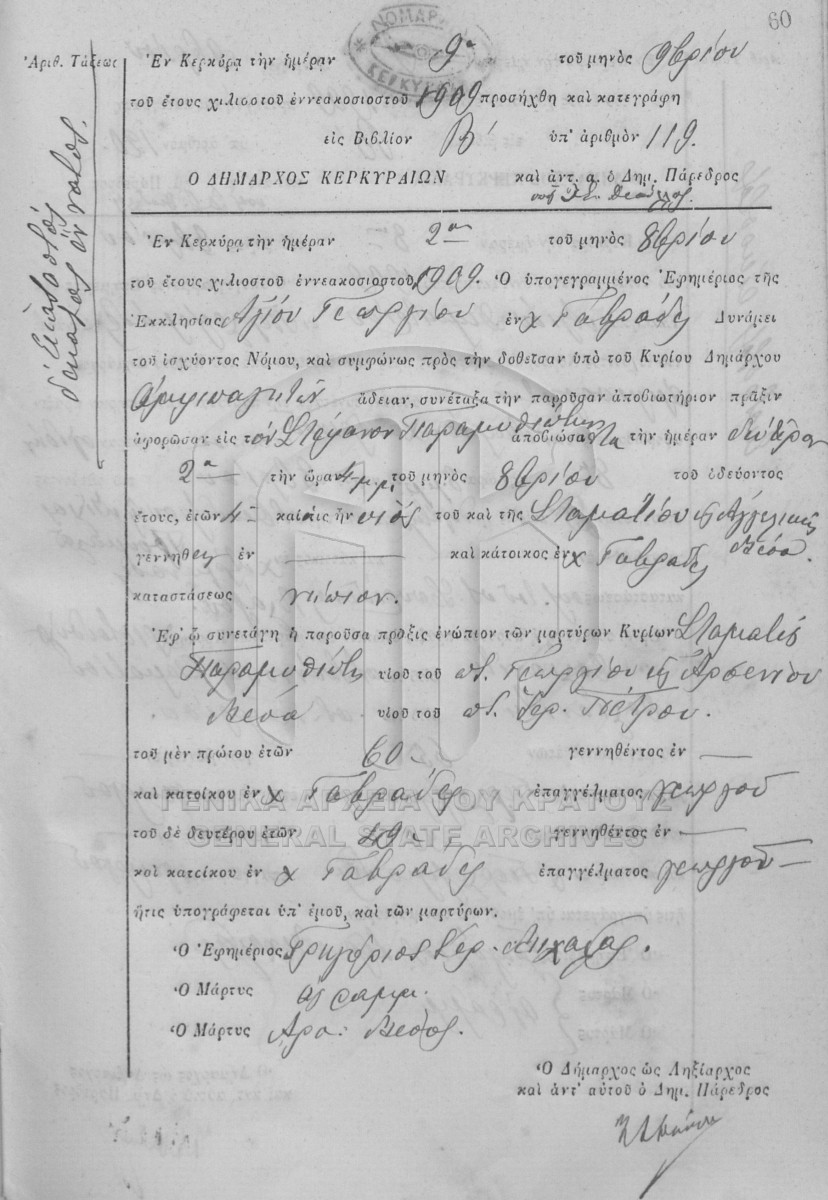 60
Ἀριθ. Τάξεως
Ἐν Κερκύρᾳ τὴν ἡμέραν 9η τοῦ μηνὸς 9βρίου
τοῦ ἔτους χιλιοστοῦ ἐννεακοσιοστοῦ 1909 προσήχθη καὶ κατεγράφη
εἰς Βιβλίον Β΄ ὑπ' ἀριθμὸν 119.
Ο ΔΗΜΑΡΧΟΣ ΚΕΡΚΥΡΑΙΩΝ καὶ ἀντ. α. ὁ Δημ. Πάρεδρος
ἑκατοστὸς
δέκατος ἔννατος.
Ἐν Κερκύρᾳ τὴν ἡμέραν 2αν τοῦ μηνὸς 8βρίου
τοῦ ἔτους χιλιοστοῦ ἐννεακοσιοστοῦ 1909. Ὁ ὑπογεγραμμένος Ἐφημέριος τῆς
Ἐκκλησίας Ἁγίου Γεωργίου ἐν χ Γαβράδες Δυνάμει
τοῦ ἰσχύοντος Νόμου, καὶ συμφώνως πρὸς τὴν δοθεῖσαν ὑπὸ τοῦ Κυρίου Δημάρχου
ἄδειαν, συνέταξα τὴν παροῦσαν ἀποβιωτήριον πρᾶξιν
ἀφορῶσαν εἰς τὸν Στέφανον Παραμυθιώτην ἀποβιώσαντα τὴν ἡμέραν δευτέραν
2α τὴν ὥραν 4 μ.μ. τοῦ μηνὸς 8βρίου τοῦ ὁδεύοντος
ἔτους, ἐτῶν 4 καὶ εἰς ἦν υἱὸς τοῦ καὶ τῆς Σταματίου Ἀγγελικῆς
γεννηθεὶς ἐν — καὶ κάτοικος ἐν χ Γαβράδες
καταστάσεως νήπιον.
Ἐφ' ᾧ συνετάγη ἡ παροῦσα πρᾶξις ἐνώπιον τῶν μαρτύρων Κυρίων Σταματίου
Παραμυθιώτη υἱοῦ τοῦ ποτ. Γεωργίου Ἀρσενίου
υἱοῦ τοῦ ποτ. Ἱερ. Πέτρου.
τοῦ μὲν πρώτου ἐτῶν 60 γεννηθέντος ἐν —
καὶ κατοίκου ἐν χ Γαβράδες ἐπαγγέλματος γεωργοῦ
τοῦ δὲ δευτέρου ἐτῶν 49 γεννηθέντος ἐν —
καὶ κατοίκου ἐν χ Γαβράδες ἐπαγγέλματος γεωργοῦ
ἥτις ὑπογράφεται ὑπ' ἐμοῦ, καὶ τῶν μαρτύρων.
Ὁ Ἐφημέριος Γρηγόριος Ἱερ.
Ὁ Μάρτυς ἀγράμμ.
Ὁ Μάρτυς
Ὁ Δήμαρχος ὡς Ληξίαρχος
καὶ ἀντ' αὐτοῦ ὁ Δημ. Πάρεδρος
ΓΕΝΙΚΑ ΑΡΧΕΙΑ ΤΟΥ ΚΡΑΤΟΥΣ
GENERAL STATE ARCHIVES